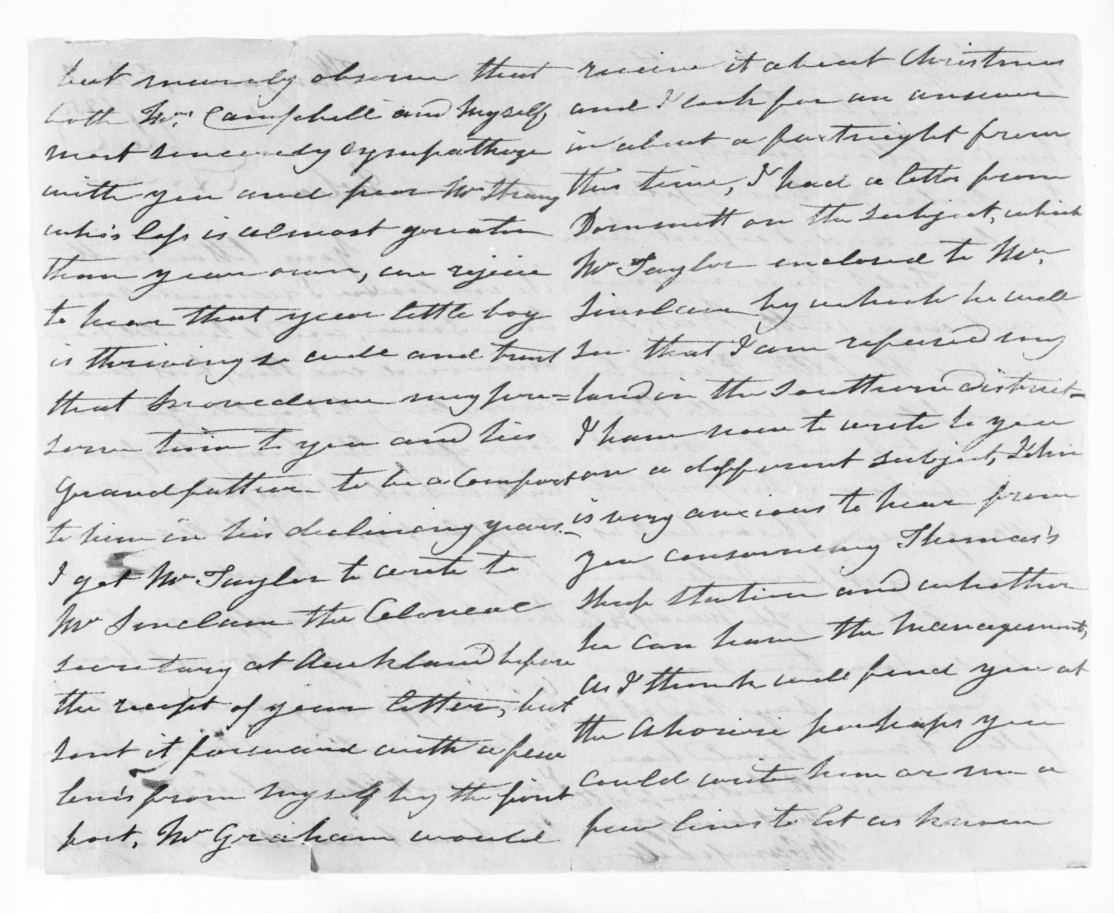 but merely observe that
both Mrs. Campbell and Myself,
most sincerely sympathize
with you and poor Mr Strang
who's loss is almost greater
than your own, we rejoice
to hear that your little boy
is thriving so well and trust
that Providence may pre=
serve him to you and his
Grandfather to be a Comfort
to him in his declining years.
I got Mr Taylor to write to
Mr Sinclair the Colonial
secretary at Auckland before
the receipt of your letter, but
sent it forward with a few
lines from myself by the first
post. Mr Graham would
receive it about Christmas
and I look for an answer
in about a fortnight from
this time, I had a letter from
Dommett on the subject, which
Mr Taylor enclosed to Mr.
Sinclair by which he will
see that I am refused my
land in the Southern district-
I have now to write to you
on a different subject, John
is very anxious to hear from
you concerning Thomas's
sheep station and whether
he can have the management,
as I think will find you at
the Ahoriri perhaps you
could write him or me a
few lines to let us know